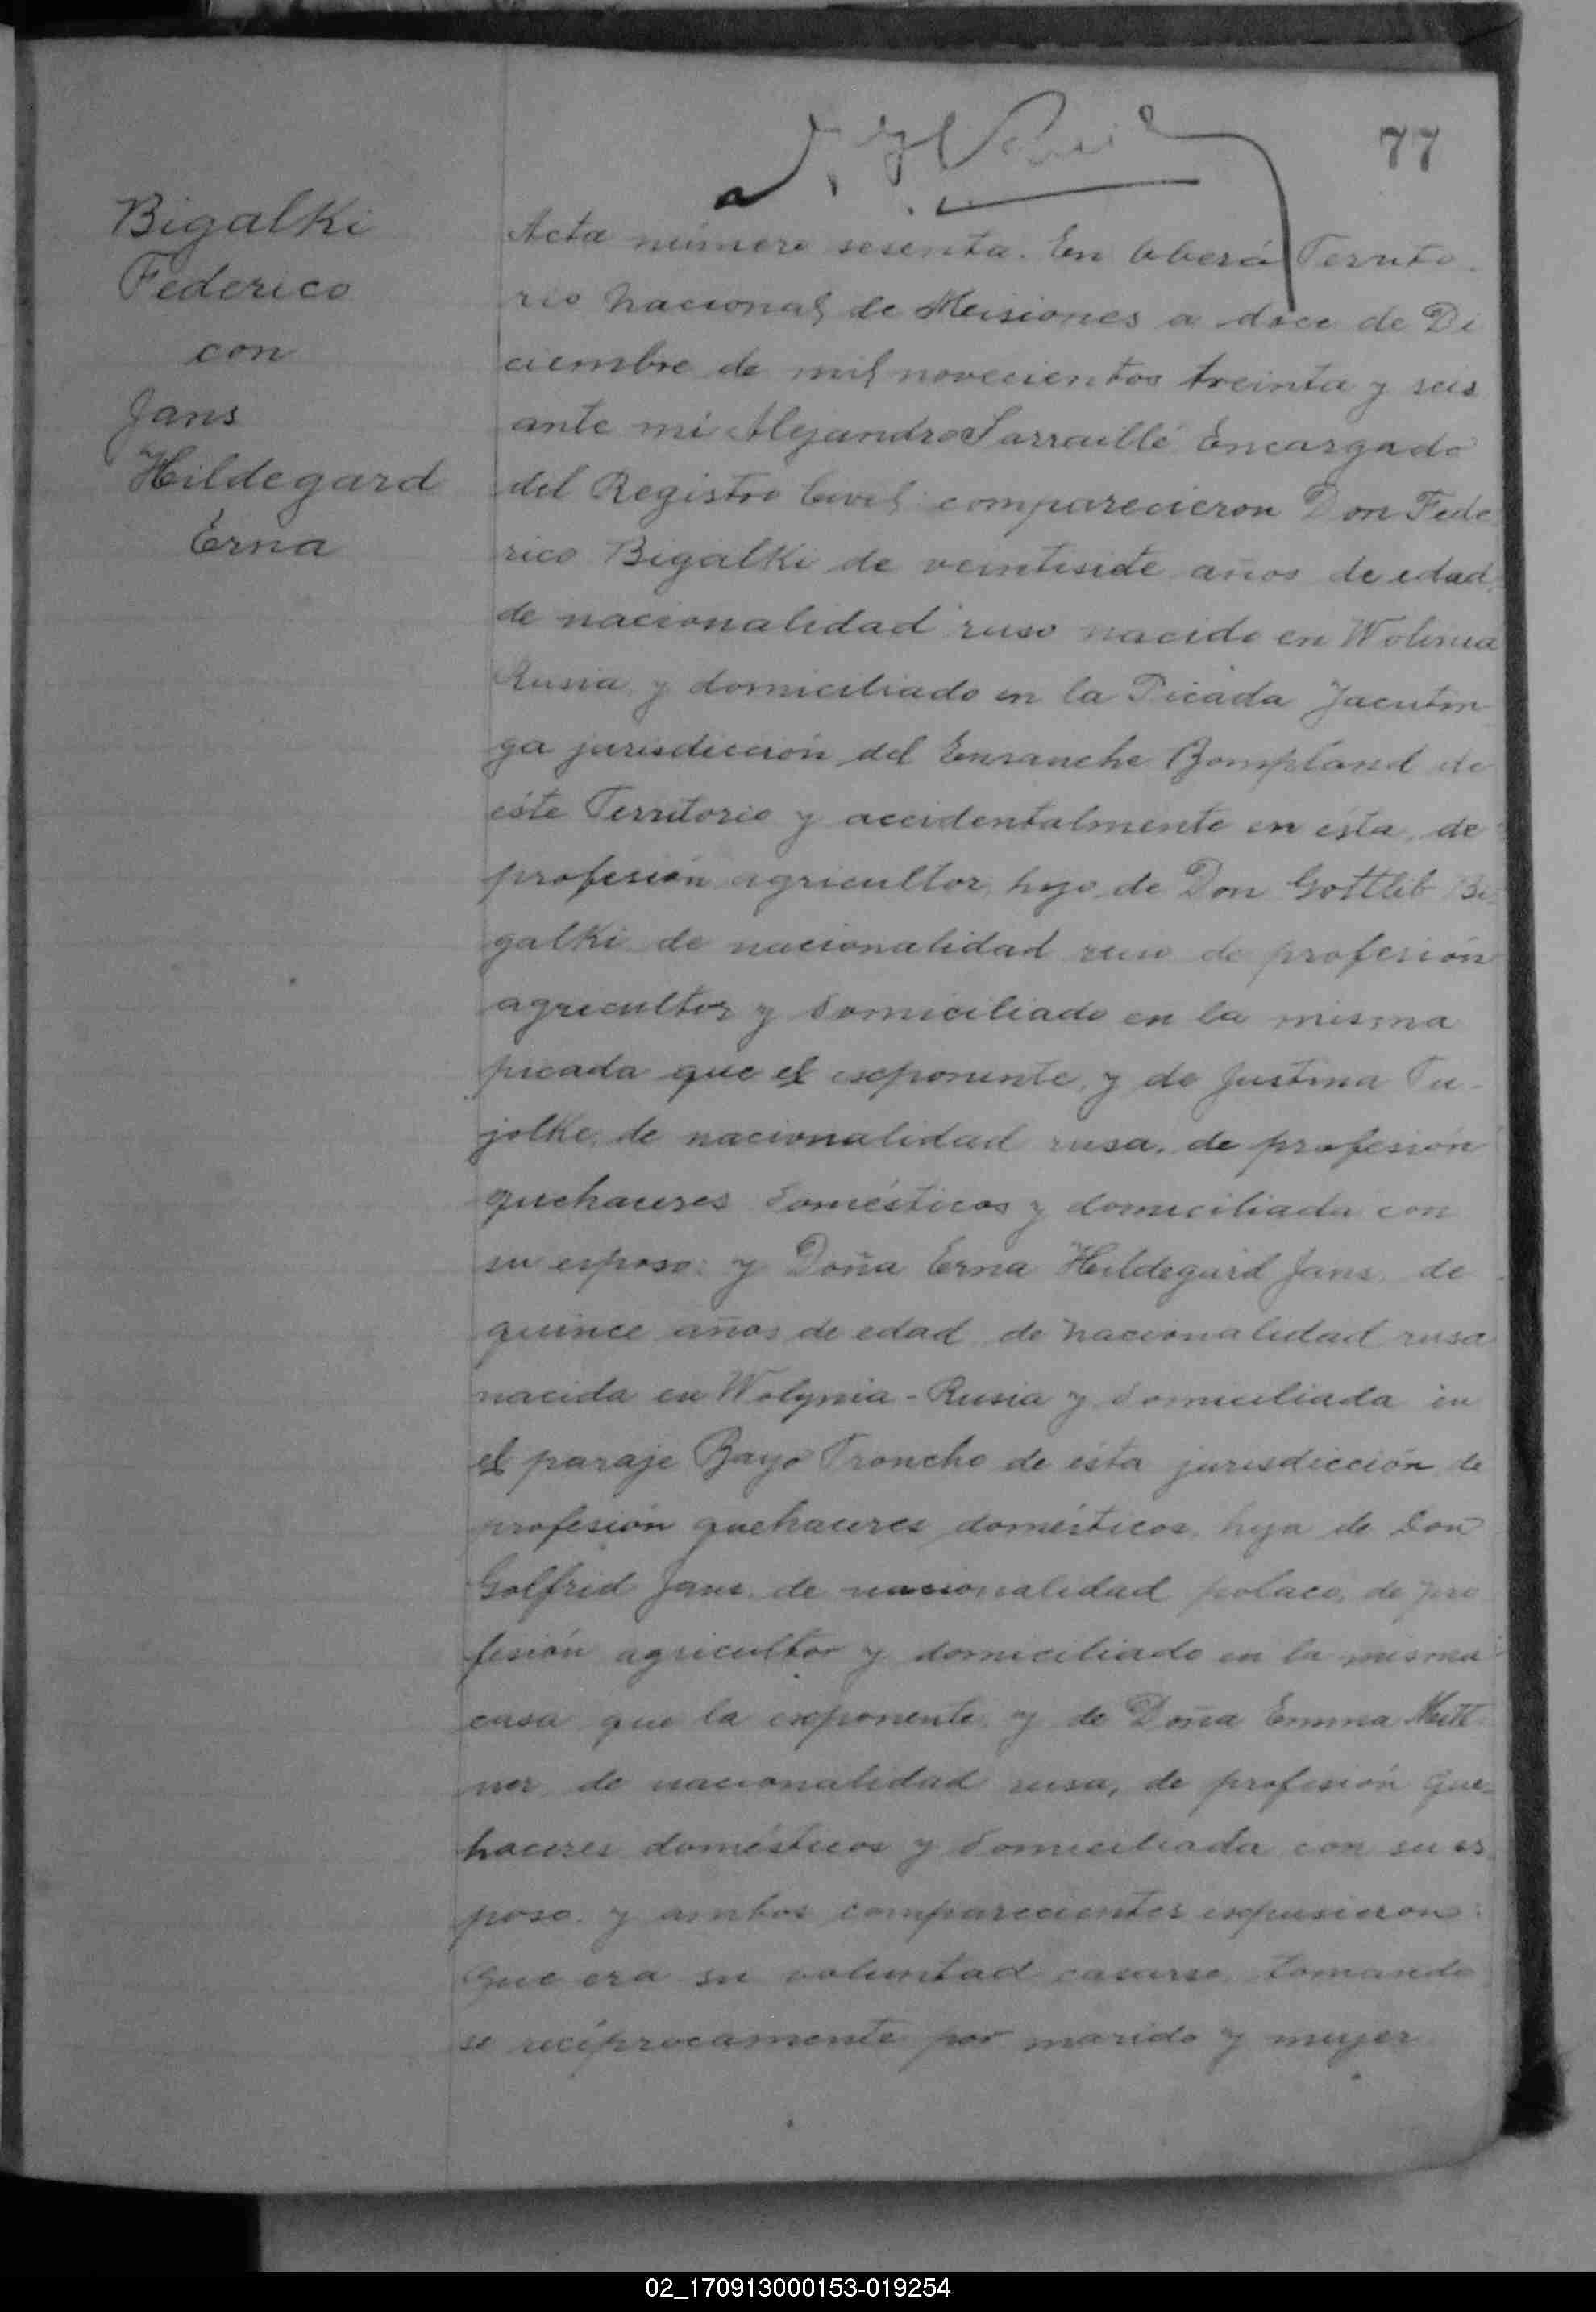 77
Bigalki
Federico
con
Jans
Hildegard
Erna
Acta número sesenta. En Oberá Territo-
rio Nacional de Misiones a doce de Di
ciembre de mil novecientos treinta y seis
ante mi Alejandro Sarraillé Encargado
del Registro Civil: comparecieron Don Fede
rico Bigalki de veintisiete años de edad,
de nacionalidad ruso nacido en Wolinia
Rusia y domiciliado en la Picada Yacutin
ga jurisdicción del Ensanche Bompland de
éste Territorio y accidentalmente en ésta, de
profesión agricultor, hijo de Don Gottlib Bi
galki de nacionalidad ruso de profesión
agricultor y domiciliado en la misma
picada que el exponente, y de Justina Tu-
jolke, de nacionalidad rusa, de profesión
quehaceres domésticos y domiciliada con
su esposo: y Doña Erna Hildegard Jans, de
quince años de edad de nacionalidad rusa
nacida en Wolynia-Rusia y domiciliada en
el paraje Bayo Troncho de ésta jurisdicción de
profesión quehaceres domésticos, hija de Don
Golfrid Jans, de nacionalidad polaco, de pro
fesión agricultor y domiciliado en la misma
casa que la exponente, y de Doña Emma Mitt
ner, de nacionalidad rusa, de profesión que-
haceres domésticos y domiciliada con su es
poso. y ambos comparecientes expusieron:
Que era su voluntad casarse tomando
se recíprocamente por marido y mujer
02_170913000153-019254